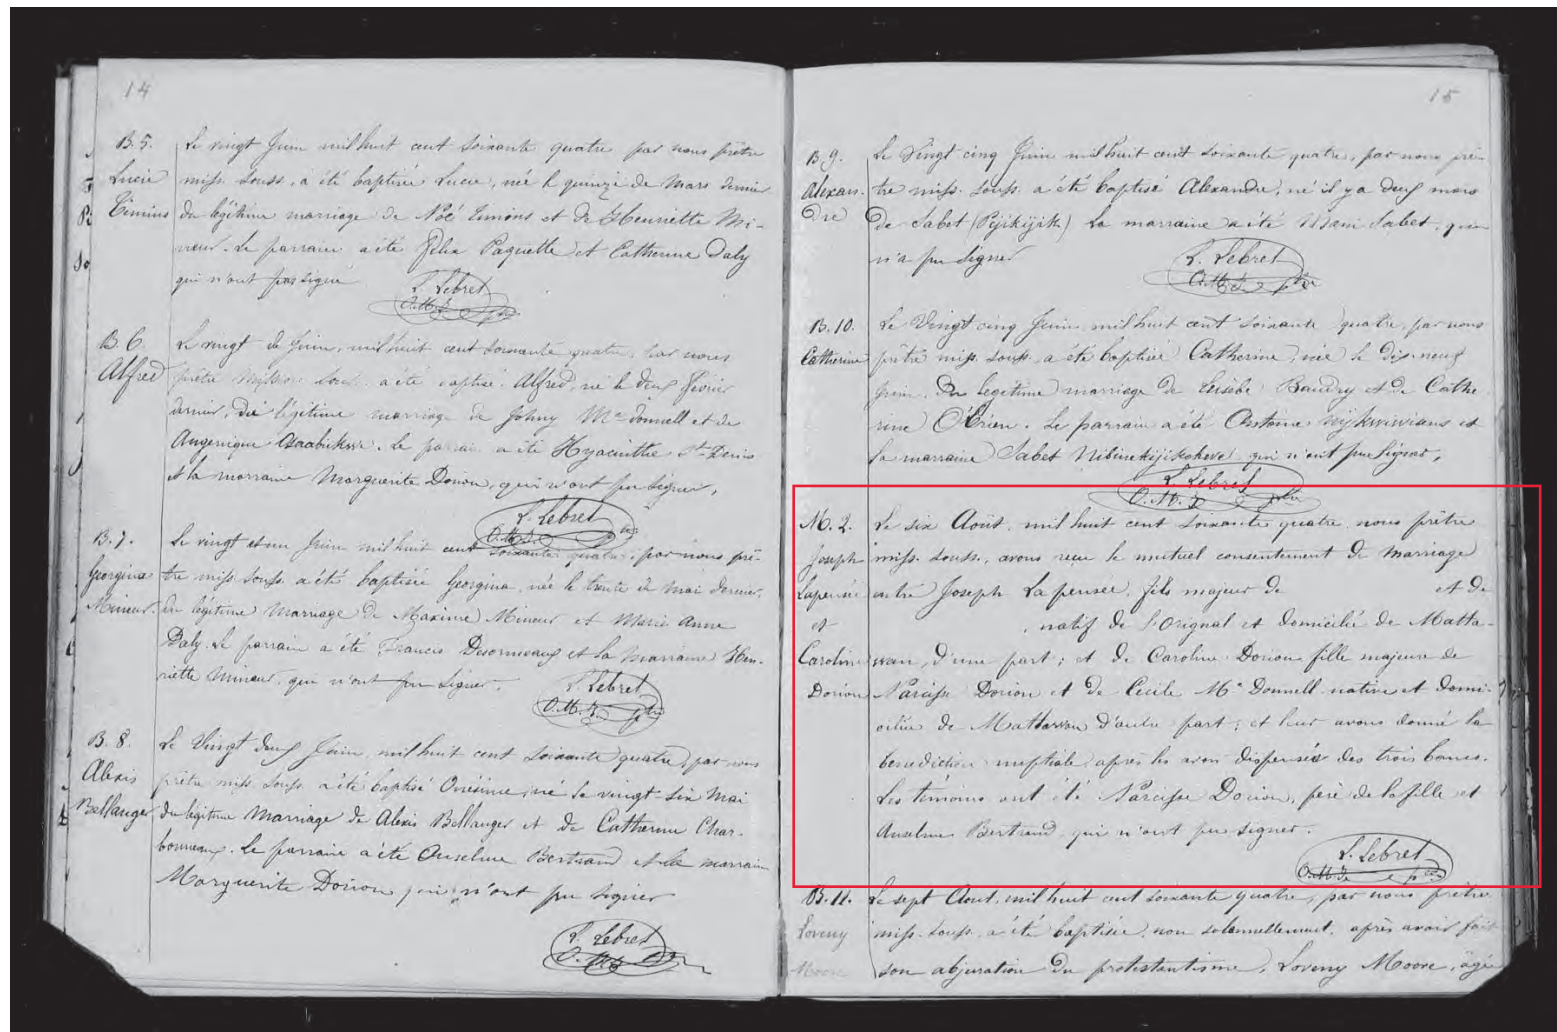 14
B. 5. Le vingt Juin mil huit cent soixante quatre par nous prêtre
Lucie miss. souss. a été baptisée Lucie, née le quinze de Mars dernier
Timins du légitime marriage de Noé Timons et de Henriette Mi-
neur. Le parrain a été Felix Paquette et Catherine Daly
qui n'ont pas signé
L. Lebret
O.M.I. ptre
B. 6. Le vingt de Juin, mil huit cent soixante quatre, par nous
Alfred prêtre mission. sous. a été baptisé Alfred, né le deux février
dernier, du légitime marriage de Johny Mc donnell et de
Angenique. Le parrain a été Hyacinthe St Denis
et la marraine Marguerite Dorion, qui n'ont pu signer,
L. Lebret
O.M.I. ptre
B. 7. Le vingt et un Juin mil huit cent soixante quatre, par nous prê-
Georgina tre miss. souss. a été baptisée Georgina, née le trente de mai dernier,
Mineur. du légitime marriage de Maxime Mineur et Marie Anne
Daly. Le parrain a été Francis Desormeaux et la marraine Hen-
riette Mineur, qui n'ont pu signer.
L. Lebret
O.M.I. ptre
B. 8. Le Vingt deux Juin, mil huit cent soixante quatre, par nous
Alexis prêtre miss. souss. a été baptisé Onésime, né le vingt-six Mai
Bellanger du légitime Marriage de Alexis Bellanger et de Catherine Char-
bonneaux. Le parrain a été Anselme Bertrand et la marraine
Marguerite Dorion, qui n'ont pu signer
L. Lebret
O.M.I.
15
B. 9. Le Vingt cinq Juin mil huit cent soixante quatre, par nous prê-
Alexan- tre miss. souss. a été baptisé Alexandre, né il y a deux mois
dre de Sabet (Pijikijik) La marraine a été Sabet, qui
n'a pu signer
L. Lebret
O.M.I. ptre
B. 10. Le Vingt cinq Juin, mil huit cent soixante quatre, par nous
Catherine prêtre miss. souss. a été baptisée Catherine, née le dix-neuf
Juin, du legitime marriage de Eusèbe Baudry et de Cathe
rine O'Brien. Le parrain a été Antoine et
la marraine Sabet qui n'ont pu signer,
L. Lebret
O.M.I. ptre
M. 2. Le six Août, mil huit cent soixante quatre, nous prêtre
Joseph miss. souss., avons reçu le mutuel consentement de marriage
Lapensée entre Joseph Lapensée, fils majeur de et de
et , natif de l'Orignal et domicilié de Matta-
Caroline wan, d'une part; et de Caroline Dorion fille majeure de
Dorion Narcisse Dorion et de Cecile Mc Donnell native et domi-
ciliée de Mattawan d'autre part; et leur avons donné la
benediction nuptiale, après les avoir dispensés des trois bancs.
Les témoins ont été Narcisse Dorion, père de la fille et
Anselme Bertrand qui n'ont pu signer.
L. Lebret
O.M.I. ptre
B. 11. Le sept Aout, mil huit cent soixante quatre, par nous prêtre
Loveny miss. souss. a été baptisée, non solennellement, après avoir fait
Moore son abjuration du protestantisme, Loveny Moore, agé